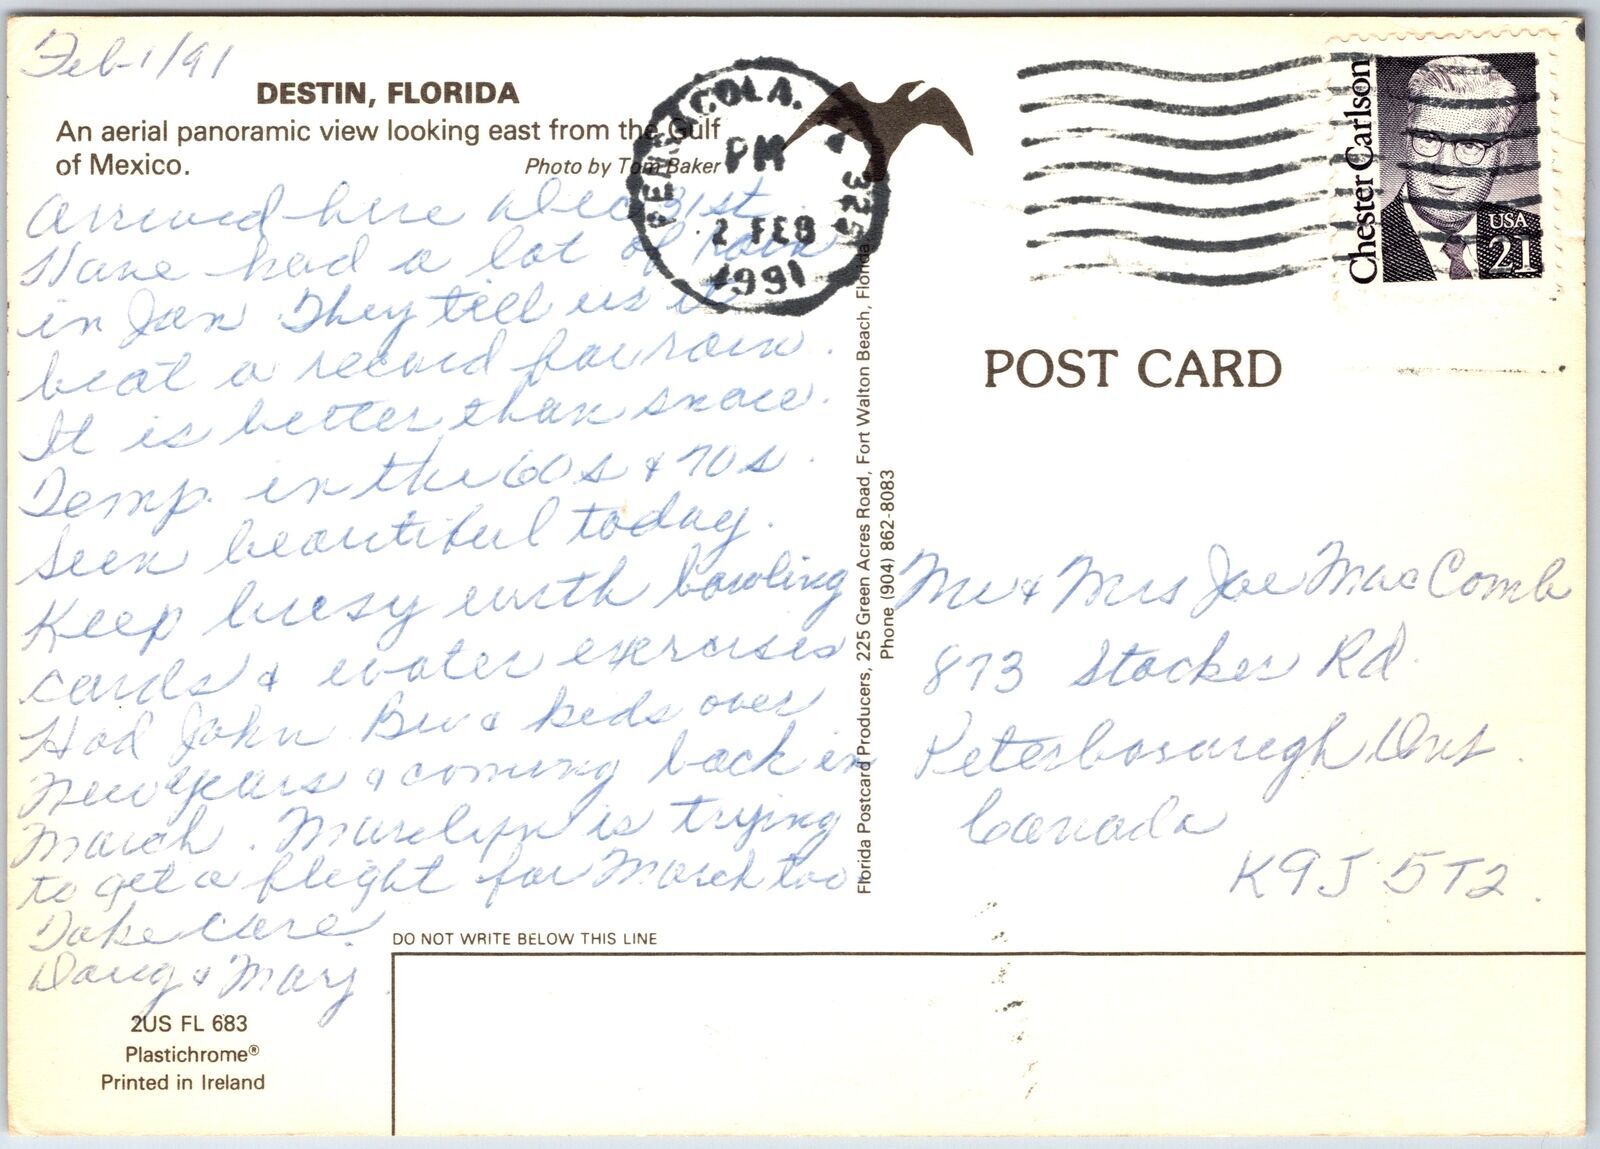 Feb 1/91
DESTIN, FLORIDA
An aerial panoramic view looking east from the Gulf
of Mexico.
Photo by Tom Baker
Arrived here Dec 31st.
Have had a lot of rain
in Jan. They tell us it
beat a record for rain.
It is better than snow.
Temp. in the 60s & 70s.
Seen beautiful today.
Keep busy with bowling
cards & water exercises
Had John Bev & kids over
New Years & coming back in
March. Marilyn is trying
to get a flight for March too
Take Care.
Doug & Mary
2US FL 683
Plastichrome®
Printed in Ireland
DO NOT WRITE BELOW THIS LINE
Florida Postcard Producers, 225 Green Acres Road, Fort Walton Beach, Florida
Phone (904) 862-8083
PENSACOLA.
PM
2 FEB
1991
325
Chester Carlson
USA
21
POST CARD
Mr & Mrs Joe MacComb
873 Stocker Rd.
Peterborough Ont.
Canada
K9J 5T2.